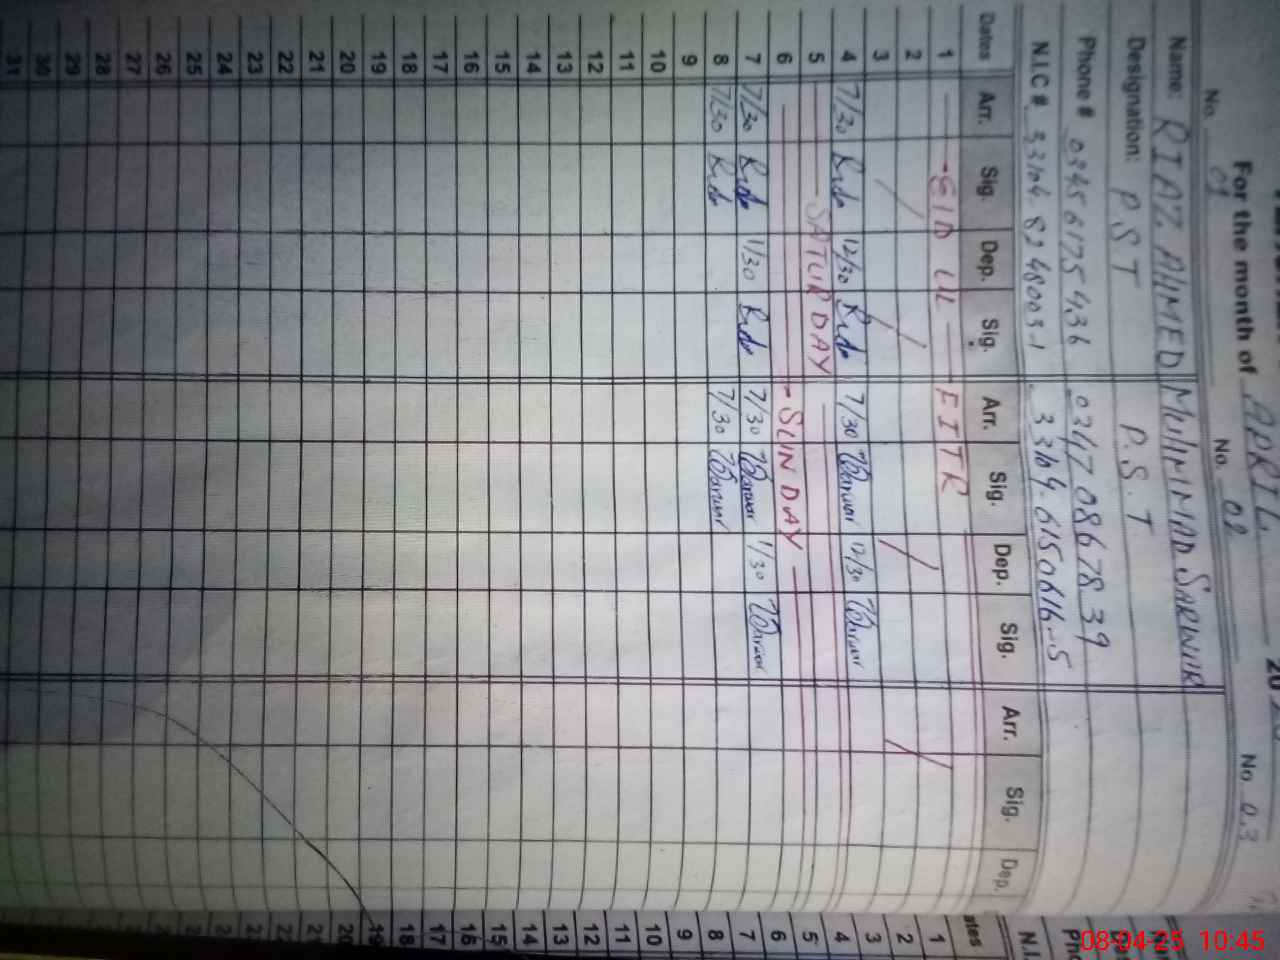 For the month of APRIL 20
No. 01 No. 02 No 03
Name: RIAZ AHMED MUHMMAD SARWAR
Designation: P.S.T P.S.T
Phone # 0345 6175436 0347 0867839
N.I.C # 33104-8248003-1 33104-6150616-5
Dates Arr. Sig. Dep. Sig. Arr. Sig. Dep. Sig. Arr. Sig. Dep.
1 - EID UL - FITR 1
2 2
3 3
4 7/30 12/30 7/30 Sarwar 12/30 Sarwar 4
5 SATURDAY 5
6 SUNDAY 6
7 7/30 1/30 7/30 Sarwar 1/30 Sarwar 7
8 7/30 7/30 Sarwar 8
9 9
10 10
11 11
12 12
13 13
14 14
15 15
16 16
17 17
18 18
19 19
20 20
21 21
22 22
23 23
24 24
25 25
26 26
27 27
28 28
29 29
30 30
31 31
08-04-25 10:45